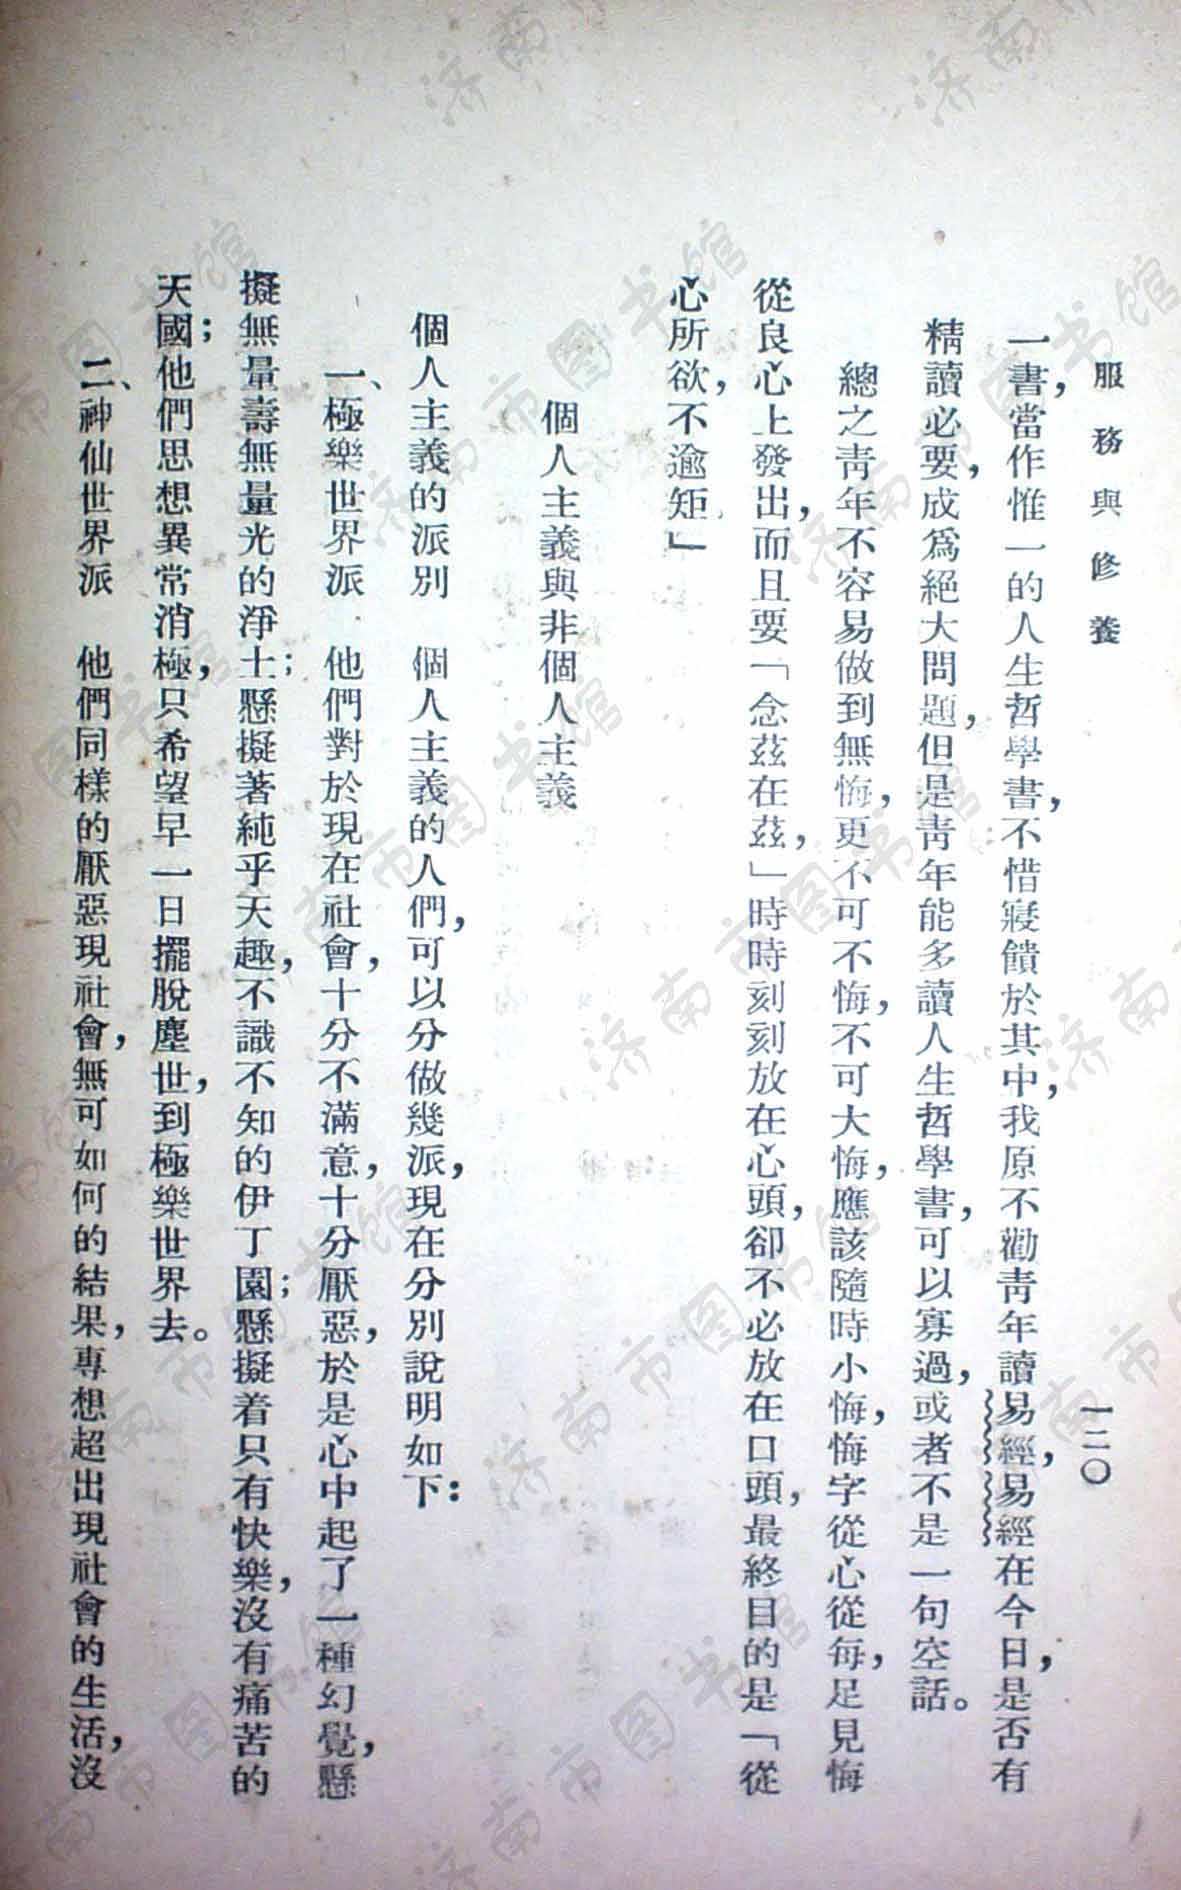 服務與修養
一二〇
一書，當作惟一的人生哲學書，不惜寢饋於其中，我原不勸青年讀易經，易經在今日，是否有
精讀必要，成爲絕大問題，但是青年能多讀人生哲學書，可以寡過，或者不是一句空話。
總之青年不容易做到無悔，更不可不悔，不可大悔，應該隨時小悔，悔字從心從每，足見悔
從良心上發出，而且要「念茲在茲，」時時刻刻放在心頭，卻不必放在口頭，最終目的是「從
心所欲，不逾矩。」
個人主義與非個人主義
個人主義的派別　個人主義的人們，可以分做幾派，現在分別說明如下：
一、極樂世界派　他們對於現在社會，十分不滿意，十分厭惡，於是心中起了一種幻覺，懸
擬無量壽無量光的淨土；懸擬著純乎天趣，不識不知的伊丁園；懸擬着只有快樂，沒有痛苦的
天國；他們思想異常消極，只希望早一日擺脫塵世，到極樂世界去。
二、神仙世界派　他們同樣的厭惡現社會，無可如何的結果，專想超出現社會的生活，沒
济南市图书馆